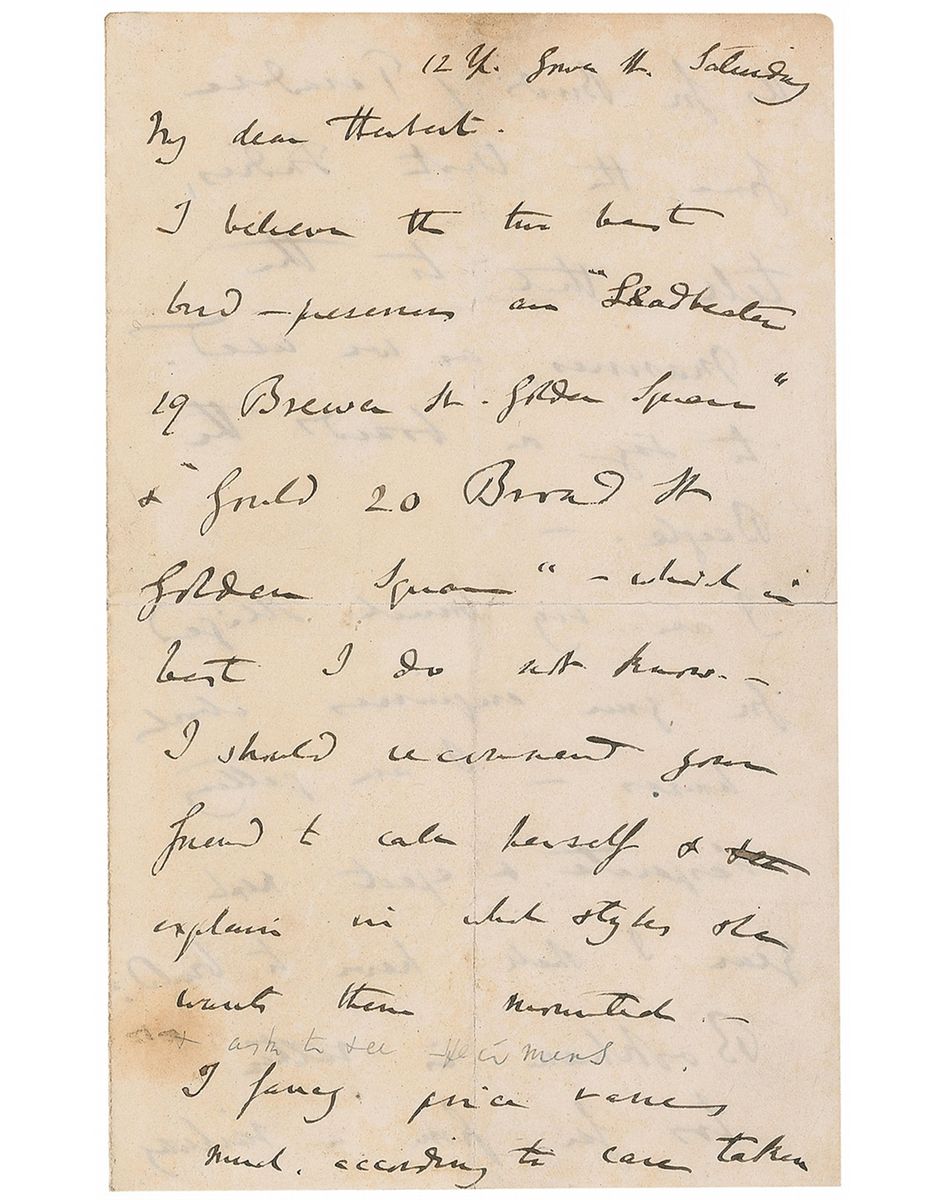 12 Up. Gower St. Saturday
My dear Herbert.
I believe the two best
bird-preservers are "Leadbeater
19 Brewer St. Golden Square"
& "Gould 20 Broad St
Golden Square" - which is
best I do not know. -
I should recommend your
friend to call herself &
explain in what styles she
wants them mounted
& ask to see specimens
I fancy price varies
much, according to care taken